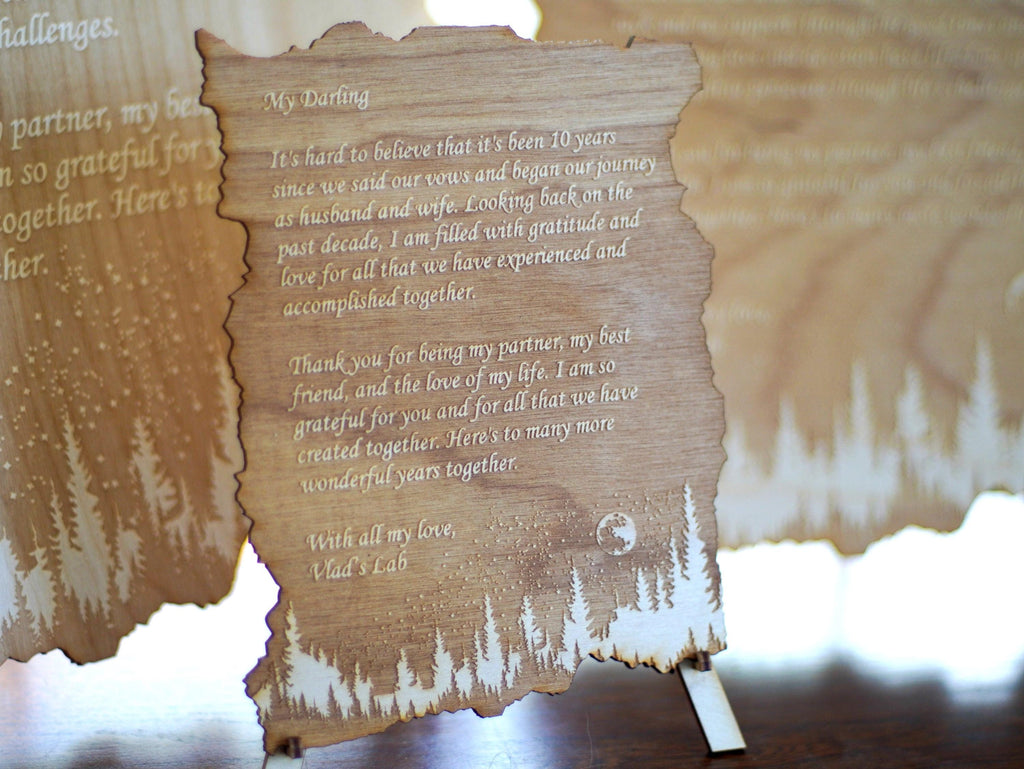 hallenges.
partner, my best
n so grateful for y
ogether. Here's to
her.
My Darling
It's hard to believe that it's been 10 years
since we said our vows and began our journey
as husband and wife. Looking back on the
past decade, I am filled with gratitude and
love for all that we have experienced and
accomplished together.
Thank you for being my partner, my best
friend, and the love of my life. I am so
grateful for you and for all that we have
created together. Here's to many more
wonderful years together.
With all my love,
Vlad's Lab